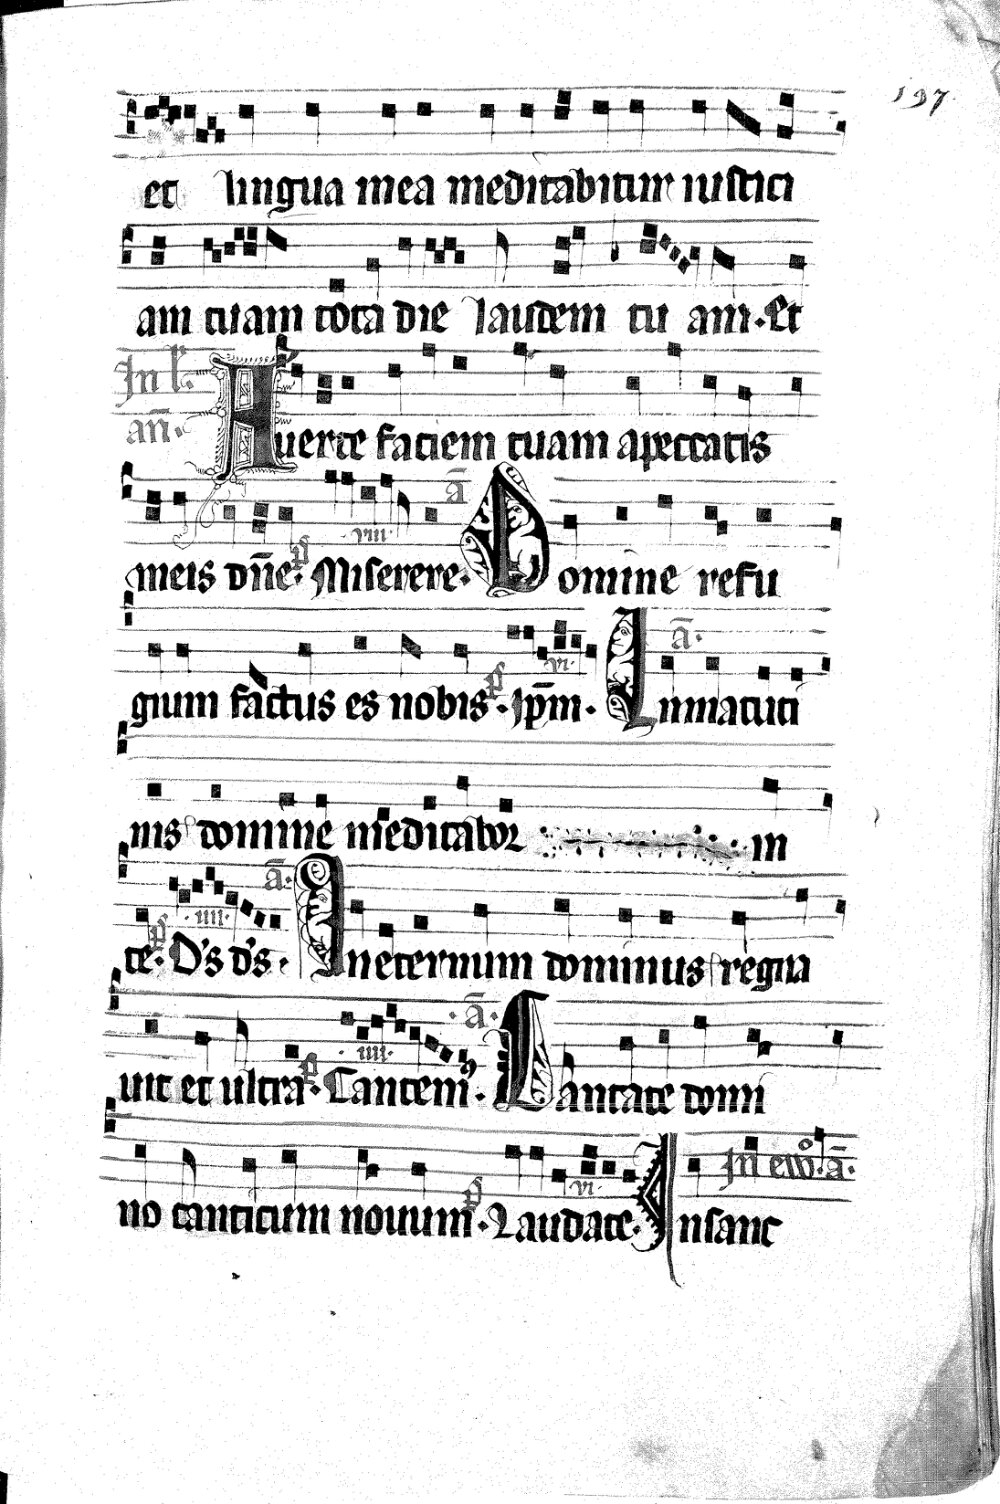 197
et lingua mea meditabitur iustici
am tuam tota die laudem tu am. Et
In l.
an̄. Auerte faciem tuam apeccatis
meis dn̄e. ps̄ Miserere. viii ā Domine refu
gium factus es nobis. ps̄ Ip̄m. vi. ā. Inmatuti
nis domine meditabor in
te. ps̄ D's d's. iiii. ā. Ineternum dominus regna
uit et ultra. ps̄ Cantem9. iiii. ā. Cantate domi
no canticum nouum. ps̄ Laudate. vi. In ew̄. ā. Insanc